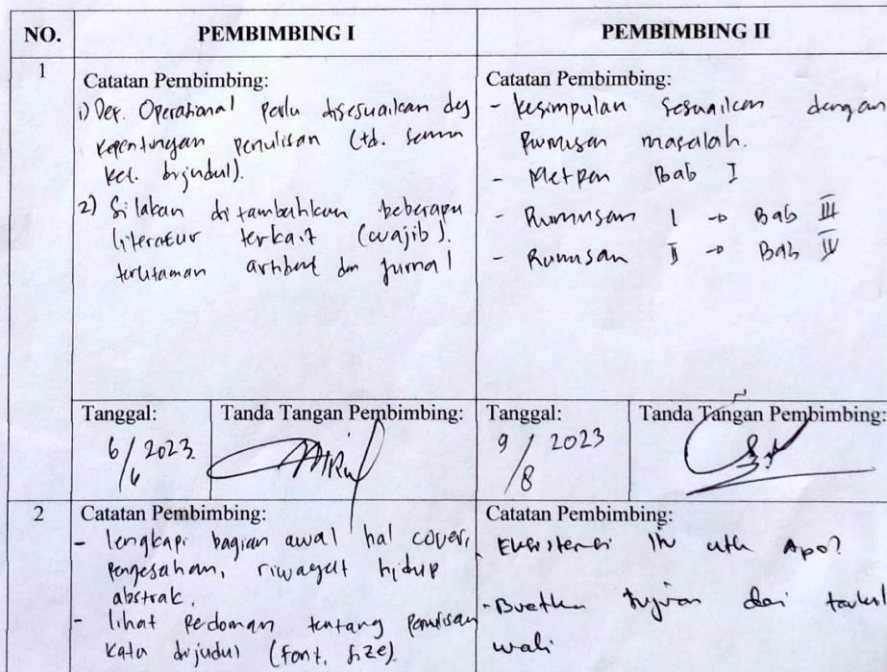 NO.
PEMBIMBING I
PEMBIMBING II
1
Catatan Pembimbing:
1) Def. Operasional perlu disesuaikan dg
kepentingan penulisan (td. semua
ket. di judul).
2) Silakan ditambahkan beberapa
literatur terkait (wajib).
terutaman artikel dan jurnal
Catatan Pembimbing:
- Kesimpulan sesuaikan dengan
Rumusan masalah.
- Metpen Bab I
- Rumusan I → Bab III
- Rumusan II → Bab IV
Tanggal:
6/6 2023
Tanda Tangan Pembimbing:
Tanggal:
9/8 2023
Tanda Tangan Pembimbing:
2
Catatan Pembimbing:
- lengkapi bagian awal hal cover,
pengesahan, riwayat hidup
abstrak.
- lihat Pedoman tentang penulisan
kata di judul (font, size)
Catatan Pembimbing:
- Eksistensi itu utk Apa?
- Buatkan tujuan dari taukil
wali